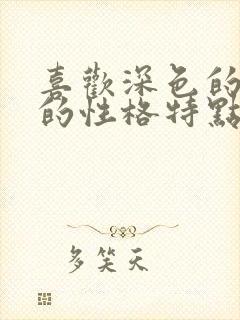 喜歡深色的
的性格特點
多笑天